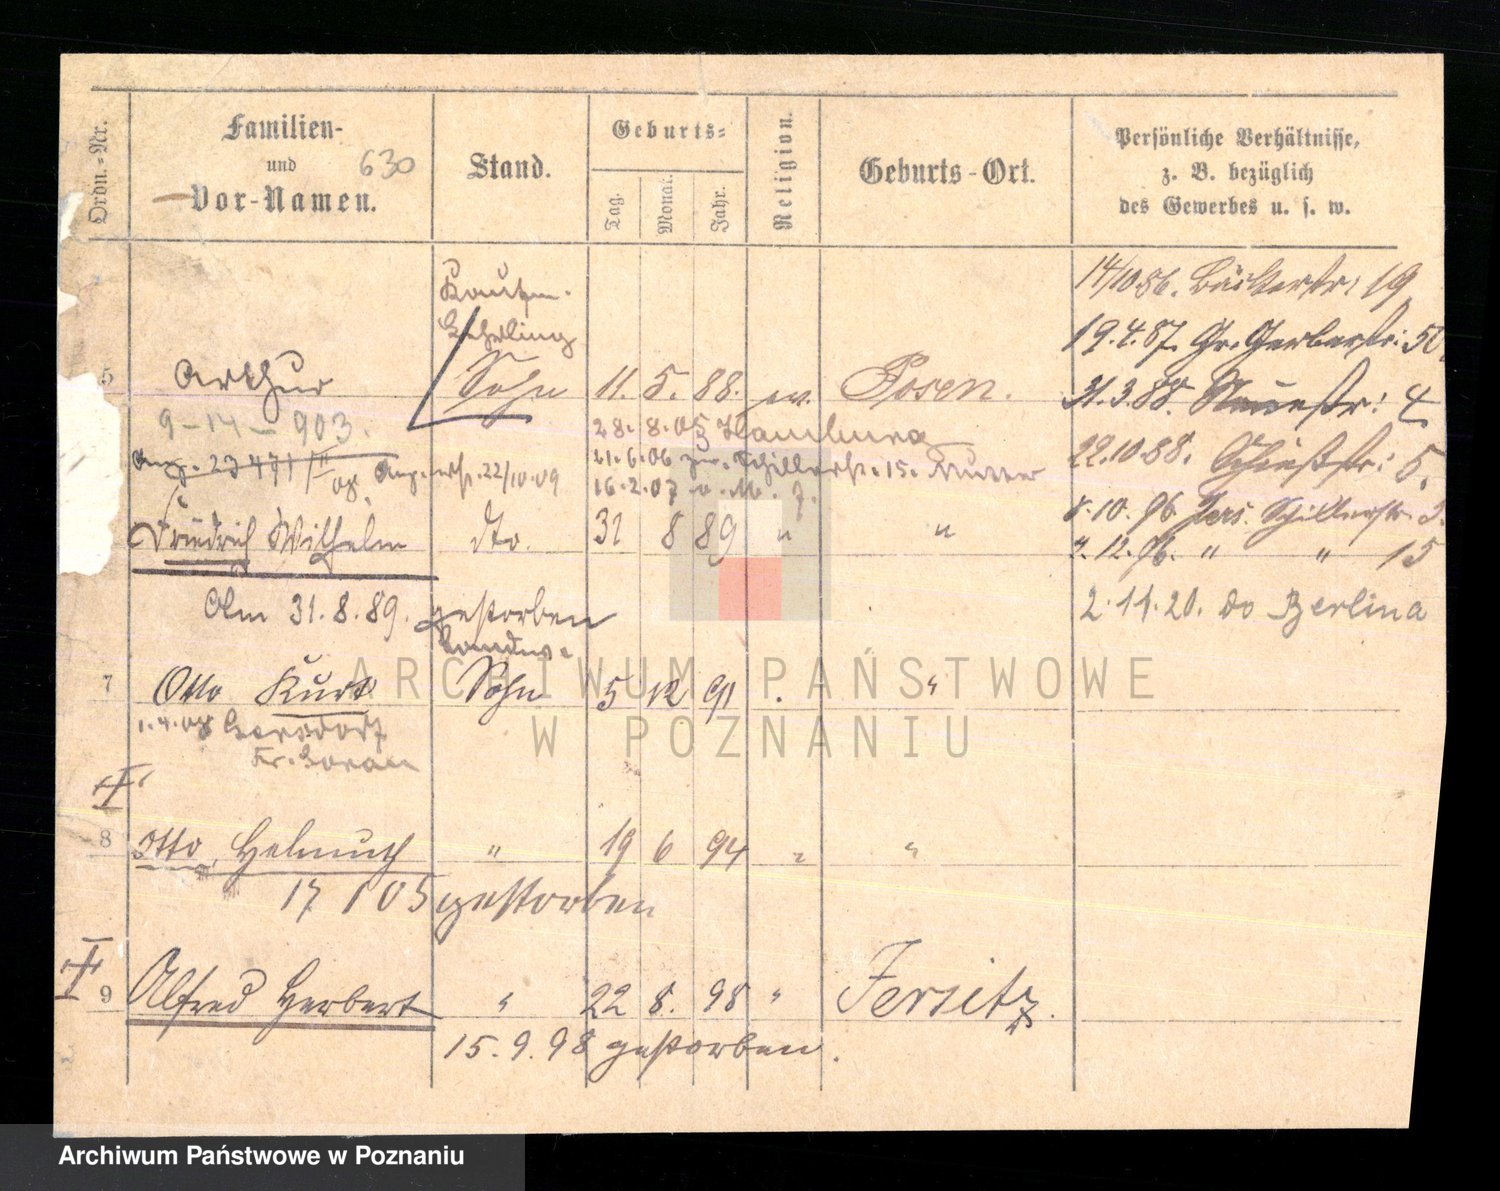 Ordn.-Nr.
Familien-
und 630
Vor-Namen.
Stand.
Geburts-
Tag.
Monat.
Jahr.
Religion.
Geburts-Ort.
Persönliche Verhältnisse,
z. B. bezüglich
des Gewerbes u. s. w.
14/10 86. Bäckerstr: 19
19.4.87. Gr. Gerberstr: 50
Kaufm.
Lehrling
5 Arthur Sohn 11. 5. 88. ev. Posen.
31.3.88. Neuestr: 4
9-14-903.
28.8.05 Hamburg
22.10.88. Schießstr: 5.
21.6.06 zur. Schillerstr. 15. Mutter
22/10.09
16.2.07
8.10.96 Jers. Schillerstr. 3.
Friedrich Wilhelm dto. 31 8 89 " "
4.12.96. " " 15
Am 31.8.89. gestorben
2.11.20. do Berlina
7 Otto Kurt Sohn 5 12 91 "
1.4.08 Gersdorf
Kr. Sorau
8 Otto, Helmuth " 19 6 94 " "
17 1 05 gestorben
9 Alfred Herbert " 22 8. 98 " Jersitz.
15.9.98 gestorben.
ARCHIWUM PAŃSTWOWE
W POZNANIU
Archiwum Państwowe w Poznaniu